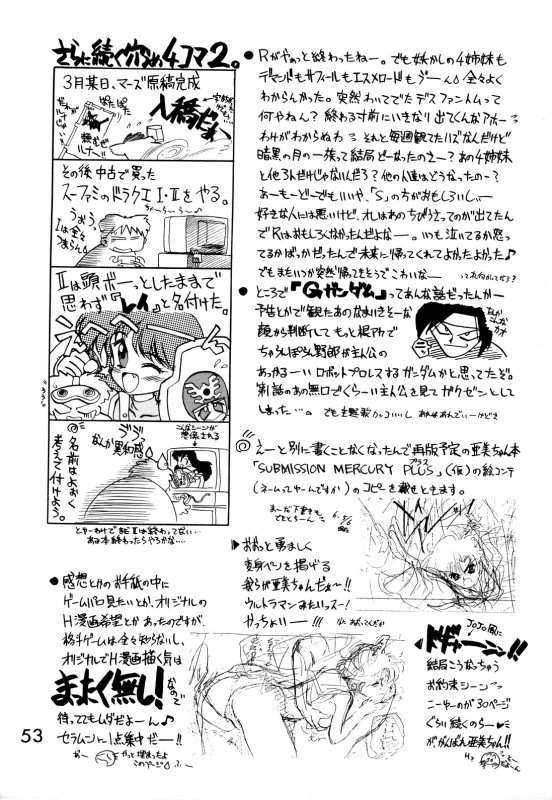 さらに続く穴うめ4コマ2。
3月某日、マーズ原稿完成
入稿だぁ
その後中古で買った
スーファミのドラクエI・IIをやる。
Iは全々
つまらん
IIは頭ボーっとしたままで
思わず『レイ』と名付けた。
なんか異和感
こんなシーンが
想像される
名前はよおく
考えて付けよう。
●Rがやぁっと終わったねー。でも妖かしの4姉妹も
デマンドもサフィールもエスメロードもうーん全々よく
わからんかった。突然わいてでたデスファントムって
何やねん？終わる寸前にいきなり出てくんなアホー
わけがわからぬわ それと毎週観てたハズなんだけど
暗黒の月の一族って結局どーなったのさー？あの4姉妹
と他3人だけじゃないんだろ？他の人達はどうなったの～？
あーもーどーでもいいや、「S」の方がおもしろいし…
好きな人には悪いけど、オレはあのちびうさってのが出てたん
でRはおもしろくなかったんだよなー。いつも泣いてるか怒っ
てるかばっかだったんで未来に帰ってくれてよかったよかった♪
でもまたいつか突然帰ってきそうでこわいなー
●ところで『Gガンダム』ってあんな話だったんかー
予告とかで観たあのなまいきそーな
顔から判断してもっと根アカで
ちゃらんぽらん野郎が主人公の
あっかるーいロボットプロレスするガンダムかと思ってたぞ。
第1話のあの無口でくらーい主人公を見てガクゼンとして
しまった…
でも主題歌カッコいいし
えーと別に書くことなくなったんで再版予定の亜美ちゃん本
「SUBMISSION MERCURY PLUS」(仮)の絵コンテ
プラス
(ネームってゆーんですか)のコピーを載せときます。
▶おおっと勇ましく
変身ペンを掲げる
我らが亜美ちゃんだぁ～!!
ウルトラマンみたいっスー!
やっちょいー!!!
●感想とかのお手紙の中に
ゲームパロ見たいとか、オリジナルの
H漫画希望とかあったのですが、
格斗ゲームは全々知らないし、
オリジナルでH漫画描く気は
まったく無し!なので
待っててもムダだよーん♪
セラムンに1点集中だー!!
JOJO風に
結局こうなっちゃう
お約束シーン
こーゆーのが30ページ
ぐらい続くのらー♥
がんばれ亜美ちゃん!!
53